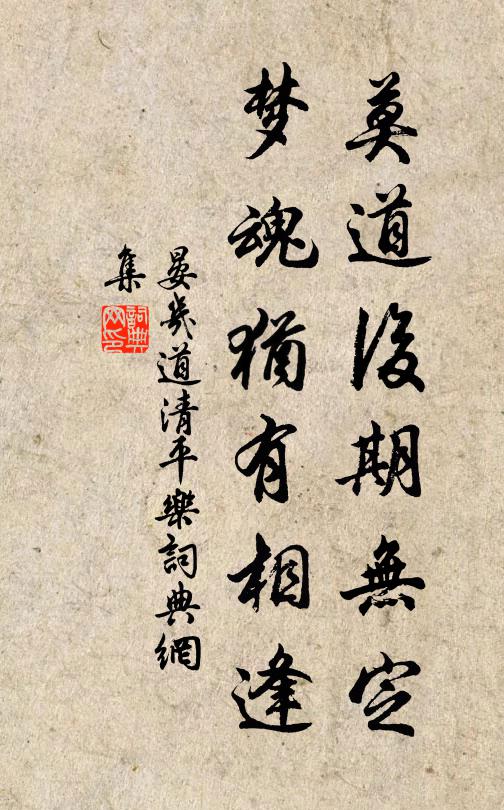 莫道後期無定
梦魂猶有相逢
晏幾道清平樂詞典網
集
詞典網印